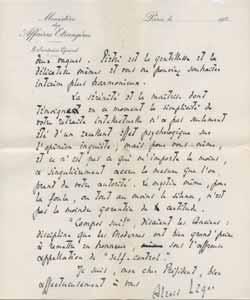 Ministère
des
Affaires Etrangères
Paris, le 192
Le Secrétaire Général
deux vagues. Piétri est la gentillesse et la
délicatesse mêmes et vous ne pouviez souhaiter
intérim plus harmonieux.
La sérénité et la maîtrise dont
témoigne en ce moment la simplicité de
votre retraite intellectuelle n'a pas seulement
été d'un excellent effet psychologique sur
l'opinion inquiète, mais pour vous-même,
et ce n'est pas ce qui m'importe le moins,
a singulièrement accru la mesure que l'on
prend de votre autorité. Le mystère même, pour
la foule, ou tout au moins le silence, n'est
pas le moindre garantie de certitude.
"Compos sui", disaient les Anciens :
discipline que les Modernes ont bien grand'peine
à remettre en honneur, sous l'affreuse
appellation de "Self-control".
Je suis, mon cher Président, bien
affectueusement à vous
Alexis Léger